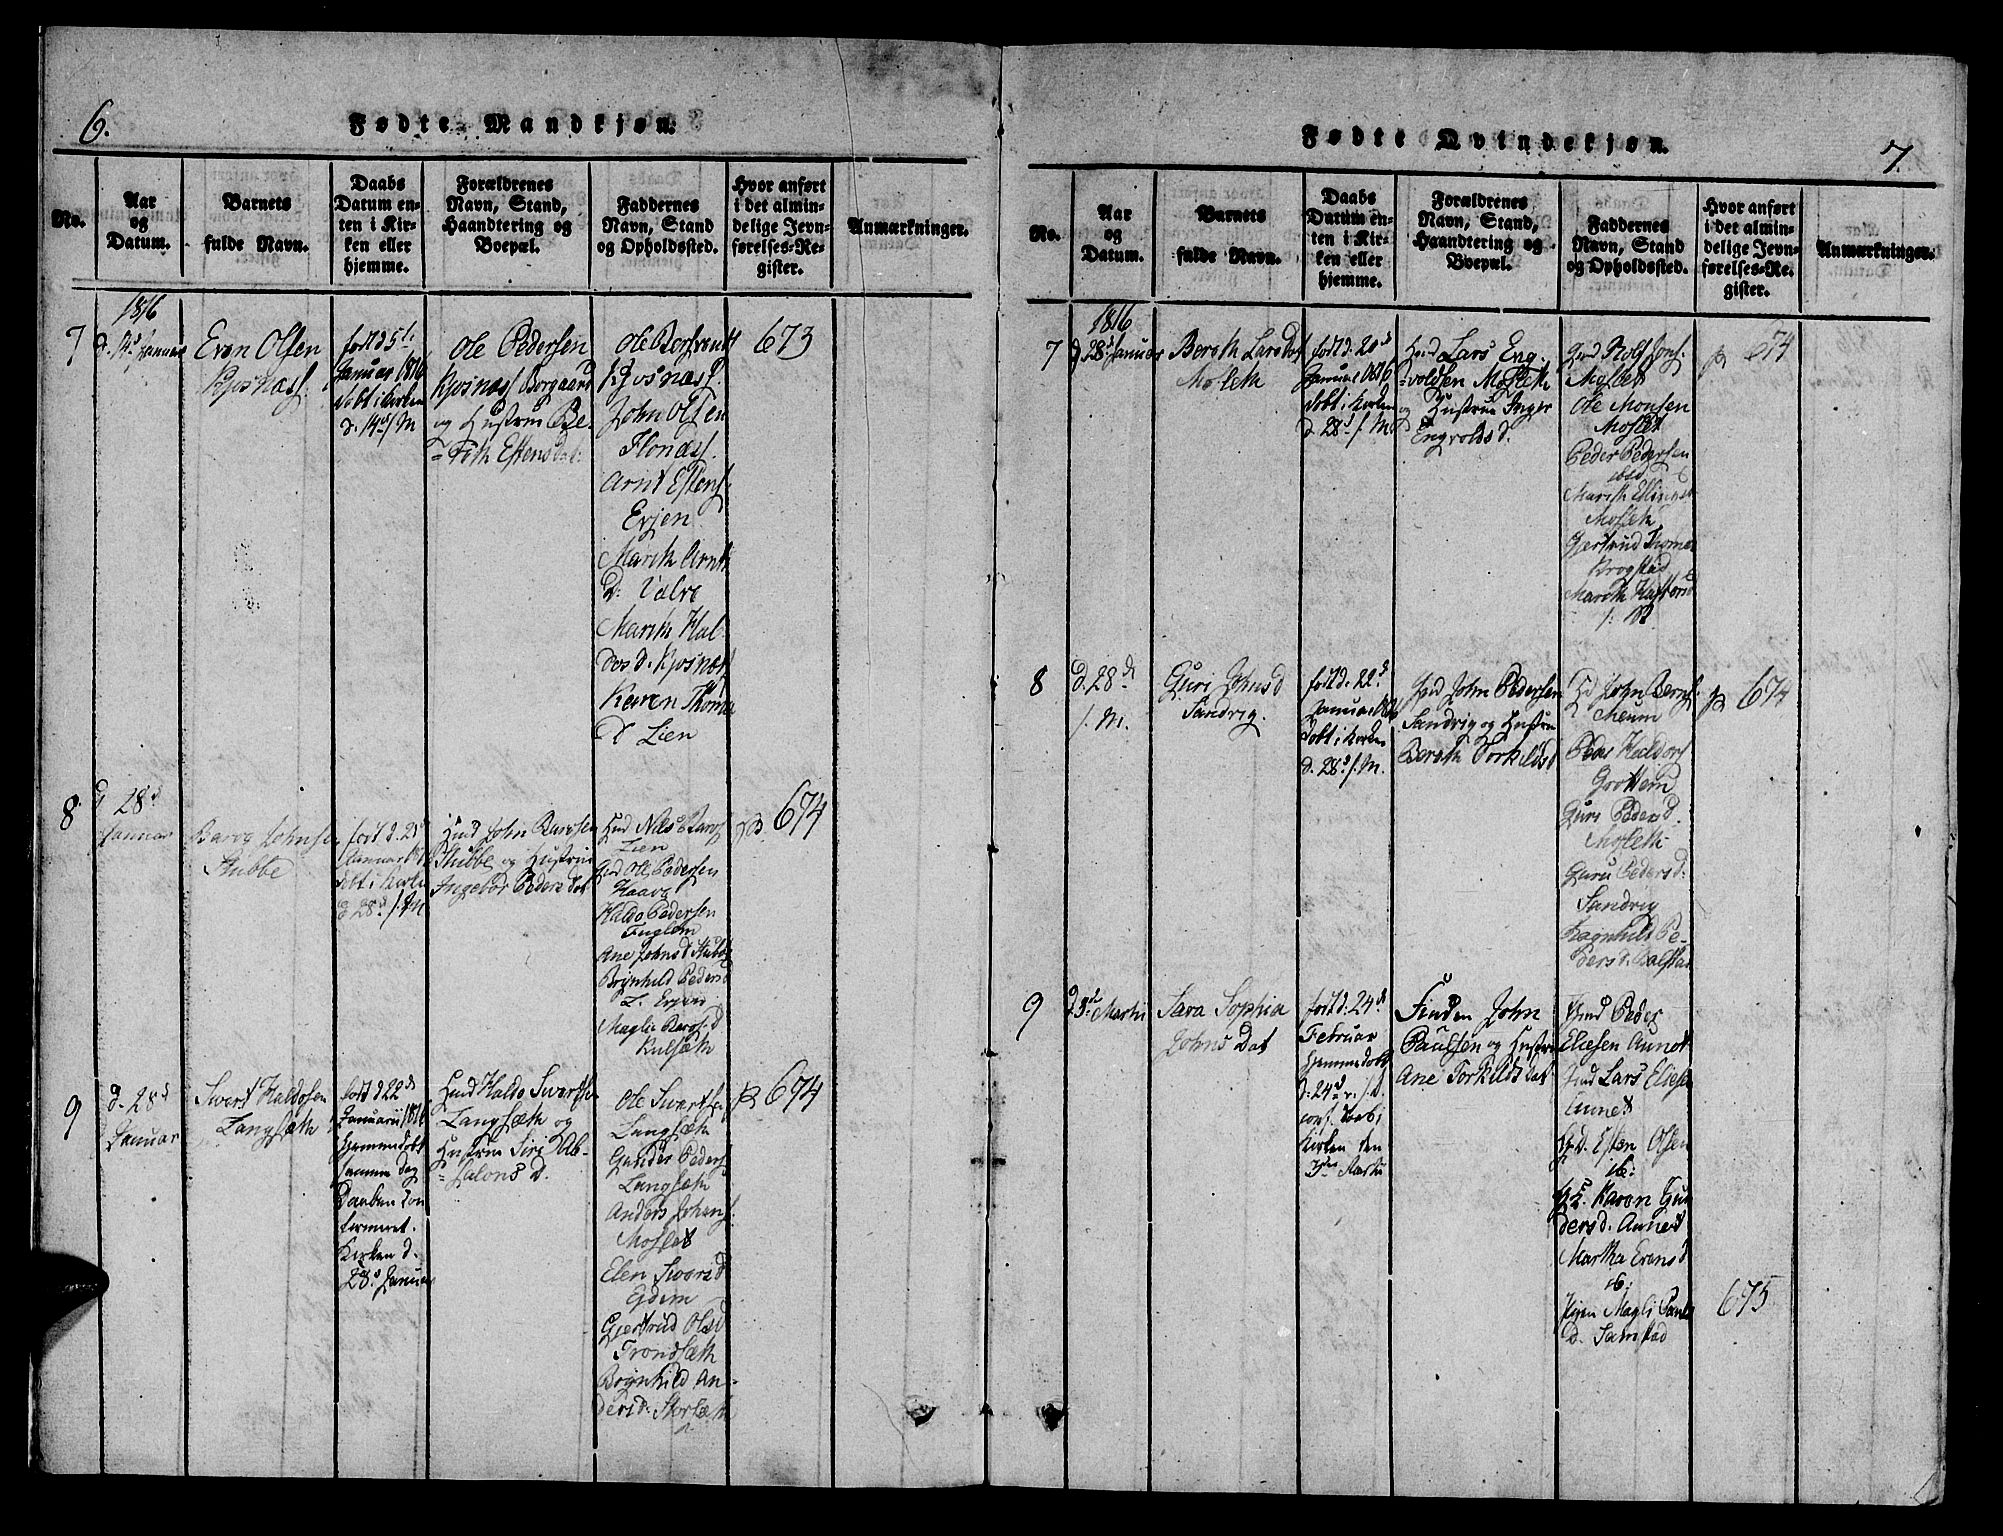 6.
Fødte Mandkjøn.
No.
Aar
og
Datum.
Barnets
fulde Navn.
Daabs
Datum en-
ten i Kir-
ken eller
hjemme.
Forældrenes
Navn, Stand,
Haandtering og
Boepæl.
Faddernes
Navn, Stand
og Opholdssted.
Hvor anført
i det almin-
delige Jevn-
førelses-Re-
gister.
Anmærkninger.
7
1816
d. 14d Januar
Even Olsen
født d 5te
Januar 1816
døbt i Kirken
d. 14d s. M
Ole Pedersen
og Hustrue Be-
reth Estensdat:
John Olsen
Flonæs.
Arnt Estens.
Erjen
Marith Arnts
D.
Marith Hal-
dos d.
Karen Thoma
d Lien
673
8
d 28d
Januar
Baroe Johnsen
Stubbe
født d. 25
Januar
døbt i Kirken
d 28d s. M
Hmd John Baroesen
Stubbe og Hustrue
Ingebor Peders dat
Lien
Hmd Ole Pedersen
Haave
Haldo Pedersen
Fuglem
Ane Johnsd Stubbe
Brynhild Pedersd
Magli Baroes.d
Kulsæth
674
9
d. 28d
Januar
Sivert Haldosen
Langsæth
født d 22d
Januarii 1816
hjemmedøbt
samme dag
Daaben con-
fermeret.
Kirken d.
28d Januar
Hmd Haldo Sivertsen
Langsæth og
Hustrue Siri Ab-
salons d.
Ole Sivertsen
Langsæth
Gunder Peders
Langsæth
Anders Johans.
Moslet
Elen Siversd
Eidem
Gjertrud Olsd
Trondsæth
Brynhild An-
dersd.
674
7.
Fødte Qvindekjøn.
No.
Aar
og
Datum.
Barnets
fulde Navn.
Daabs
Datum en-
ten i Kir-
ken eller
hjemme.
Forældrenes
Navn, Stand,
Haandtering og
Boepæl.
Faddernes
Navn, Stand
og Opholdssted.
Hvor anført
i det almin-
delige Jevn-
førelses-Re-
gister.
Anmærkninger.
7
1816
d. 28d Januar
Bereth Larsdat
Mosleth
født d. 20d
Januar 1816
døbt i Kirken
d. 28d s. M.
Hmd Lars Eng-
voldsen Mosleth
og Hustrue Inger
Engvoldsd.
Hmd Rolf Jons.
Moslet
Ole Monsen
Moslet
Peder Pedersen
ibid
Marith Ellingsd
Mosleth
Gjertrud Thomes
Krogstad
674
8
d. 28d
s. M.
Guri Johnsd
Sandvig.
født d. 22d
Januar 1816
døbt i Kirken
d. 28d s. M.
Hmd John Pedersen
Sandvig og Hustrue
Bereth Torkildsd
Peder Haldors
Grøttem
Guri Pedersd.
Mosleth
Guru Pedersd.
Sandvig
Ragnhild Pe-
dersd. Balstad
674
9
d 3die Martii
Sara Sophia
Johns Dat
født d: 24d
Februar
hjemmedøbt
d. 24d
conf. Daab i
Kirken den
3die Martii
Finden John
Paulsen og Hustrue
Ane Torkilds dat
Hmd Peder
Eliesen Aunet
Hmd Lars Eliesen
Aunet
Hmd. Esten Olsen
ib:
Karen Gun-
dersd. Aunet
Martha Evensd
ib:
Pigen Magli Pauls
D. Samstad
675